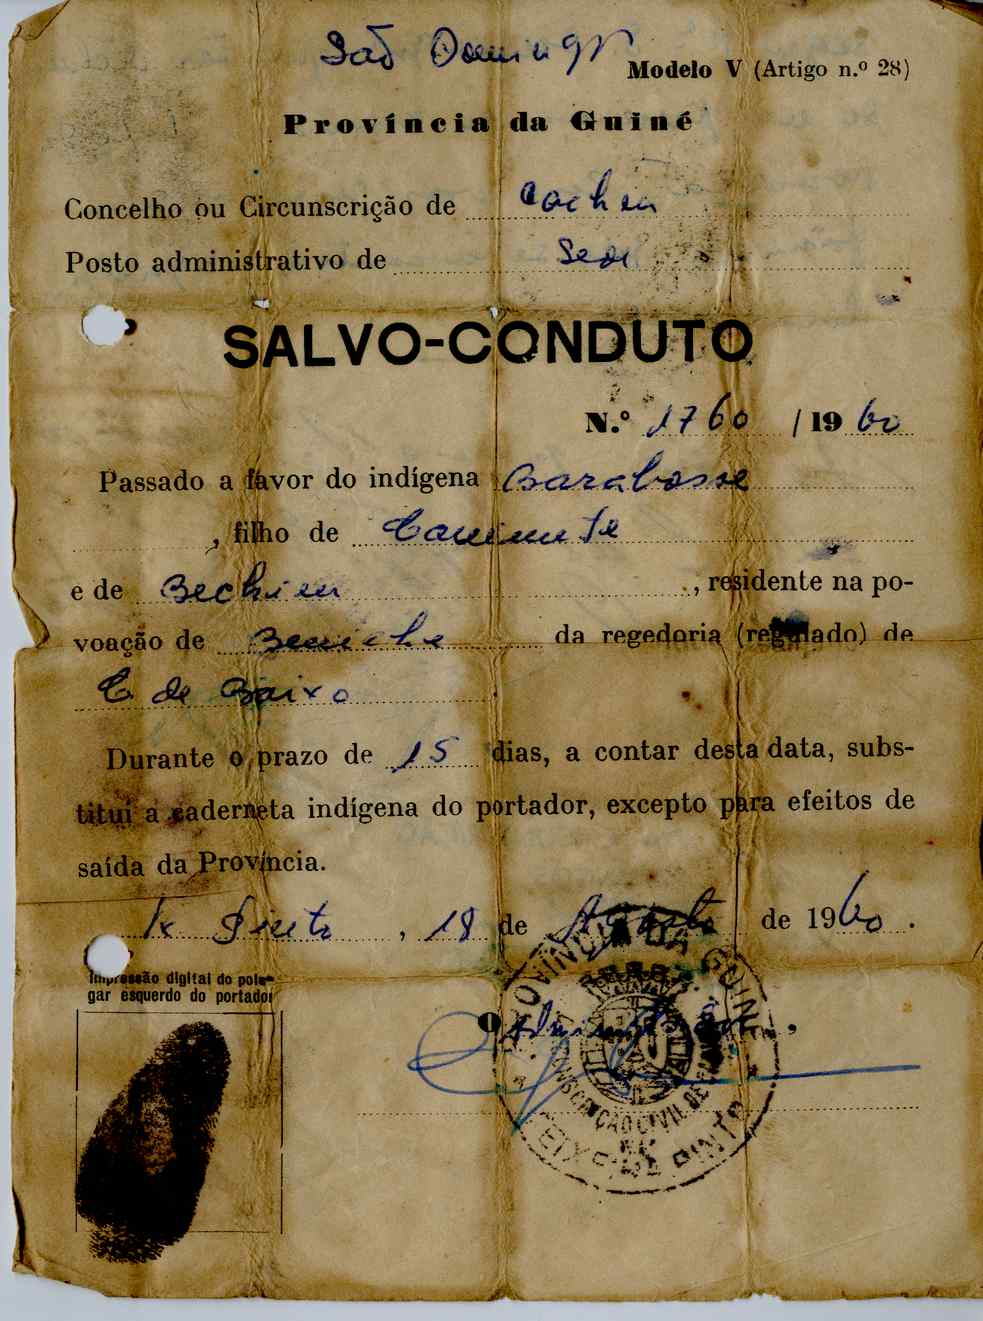 São Domingos
Modelo V (Artigo n.º 28)
Província da Guiné
Concelho ou Circunscrição de Cacheu
Posto administrativo de Sede
SALVO-CONDUTO
N.º 1760 / 1960
Passado a favor do indígena Barabosse
, filho de
e de Bechieu , residente na po-
voação de da regedoria (regulado) de
C de Baixo
Durante o prazo de 15 dias, a contar desta data, subs-
titui a caderneta indígena do portador, excepto para efeitos de
saída da Província.
Tx Pinto , 18 de Agosto de 1960 .
Impressão digital do pole-
gar esquerdo do portador
O ,
PROVÍNCIA DA GUINÉ
TEIXEIRA PINTO